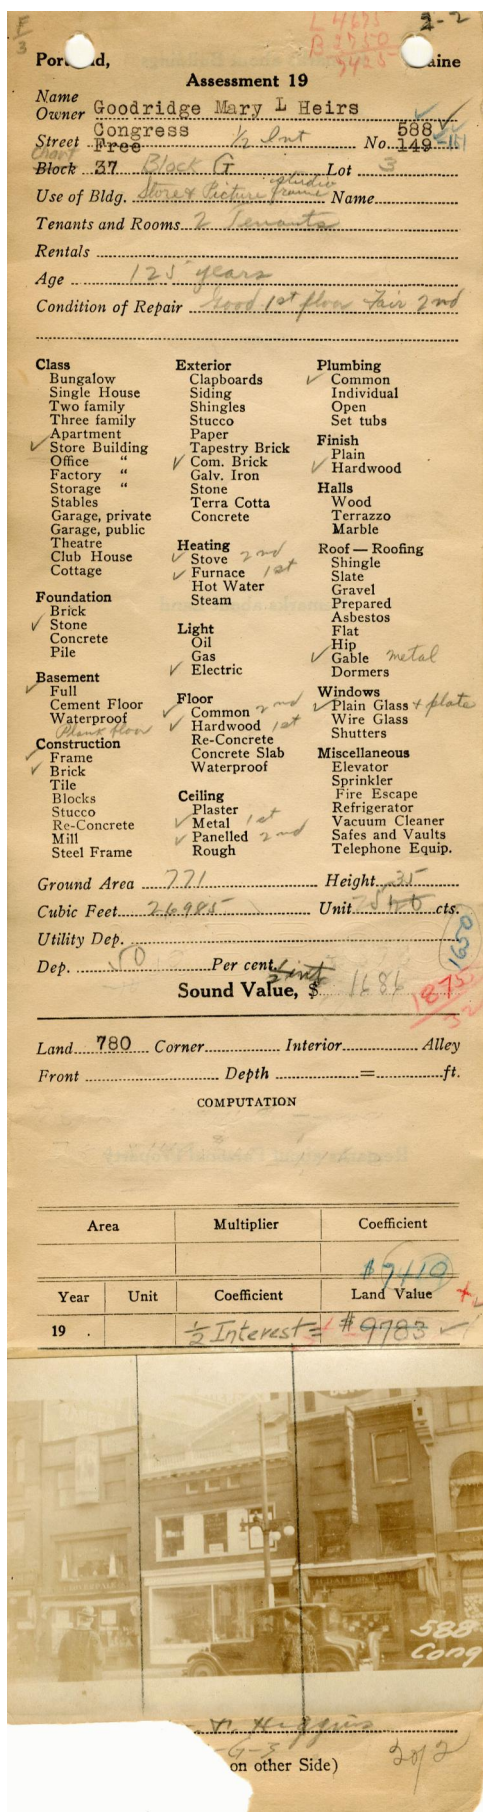 F
3
L 4675
B 4750
9425
2-2
Portland, Maine
Assessment 19
Name
Owner Goodridge Mary L Heirs
Congress 588
Street Free ½ Int No. 149-151
Chart
Block 37 Block G Lot 3
Use of Bldg. Store & Picture frame studio Name
Tenants and Rooms 2 Tenants
Rentals
Age 125 years
Condition of Repair Good 1st floor Fair 2nd
Class
Bungalow
Single House
Two family
Three family
Apartment
✓ Store Building
Office "
Factory "
Storage "
Stables
Garage, private
Garage, public
Theatre
Club House
Cottage
Foundation
Brick
✓ Stone
Concrete
Pile
Basement
✓ Full
Cement Floor
Waterproof
Plank floor
Construction
✓ Frame
✓ Brick
Tile
Blocks
Stucco
Re-Concrete
Mill
Steel Frame
Exterior
Clapboards
Siding
Shingles
Stucco
Paper
Tapestry Brick
✓ Com. Brick
Galv. Iron
Stone
Terra Cotta
Concrete
Heating
✓ Stove 2nd
✓ Furnace 1st
Hot Water
Steam
Light
Oil
Gas
✓ Electric
Floor
✓ Common 2nd
✓ Hardwood 1st
Re-Concrete
Concrete Slab
Waterproof
Ceiling
Plaster
✓ Metal 1st
✓ Panelled 2nd
Rough
Plumbing
✓ Common
Individual
Open
Set tubs
Finish
Plain
✓ Hardwood
Halls
Wood
Terrazzo
Marble
Roof — Roofing
Shingle
Slate
Gravel
Prepared
Asbestos
Flat
Hip
✓ Gable metal
Dormers
Windows
✓ Plain Glass + plate
Wire Glass
Shutters
Miscellaneous
Elevator
Sprinkler
Fire Escape
Refrigerator
Vacuum Cleaner
Safes and Vaults
Telephone Equip.
Ground Area 771 Height 35
Cubic Feet 26985 Unit cts.
Utility Dep.
Dep. 50 Per cent. ½ int
1650
Sound Value, $ 1686
1875
Land 780 Corner Interior Alley
Front Depth = ft.
COMPUTATION
Area Multiplier Coefficient
$7410
Year Unit Coefficient Land Value
19 . ½ Interest = $9783 ✓
588
Cong
Higgins
G-3
on other Side)
2 of 2